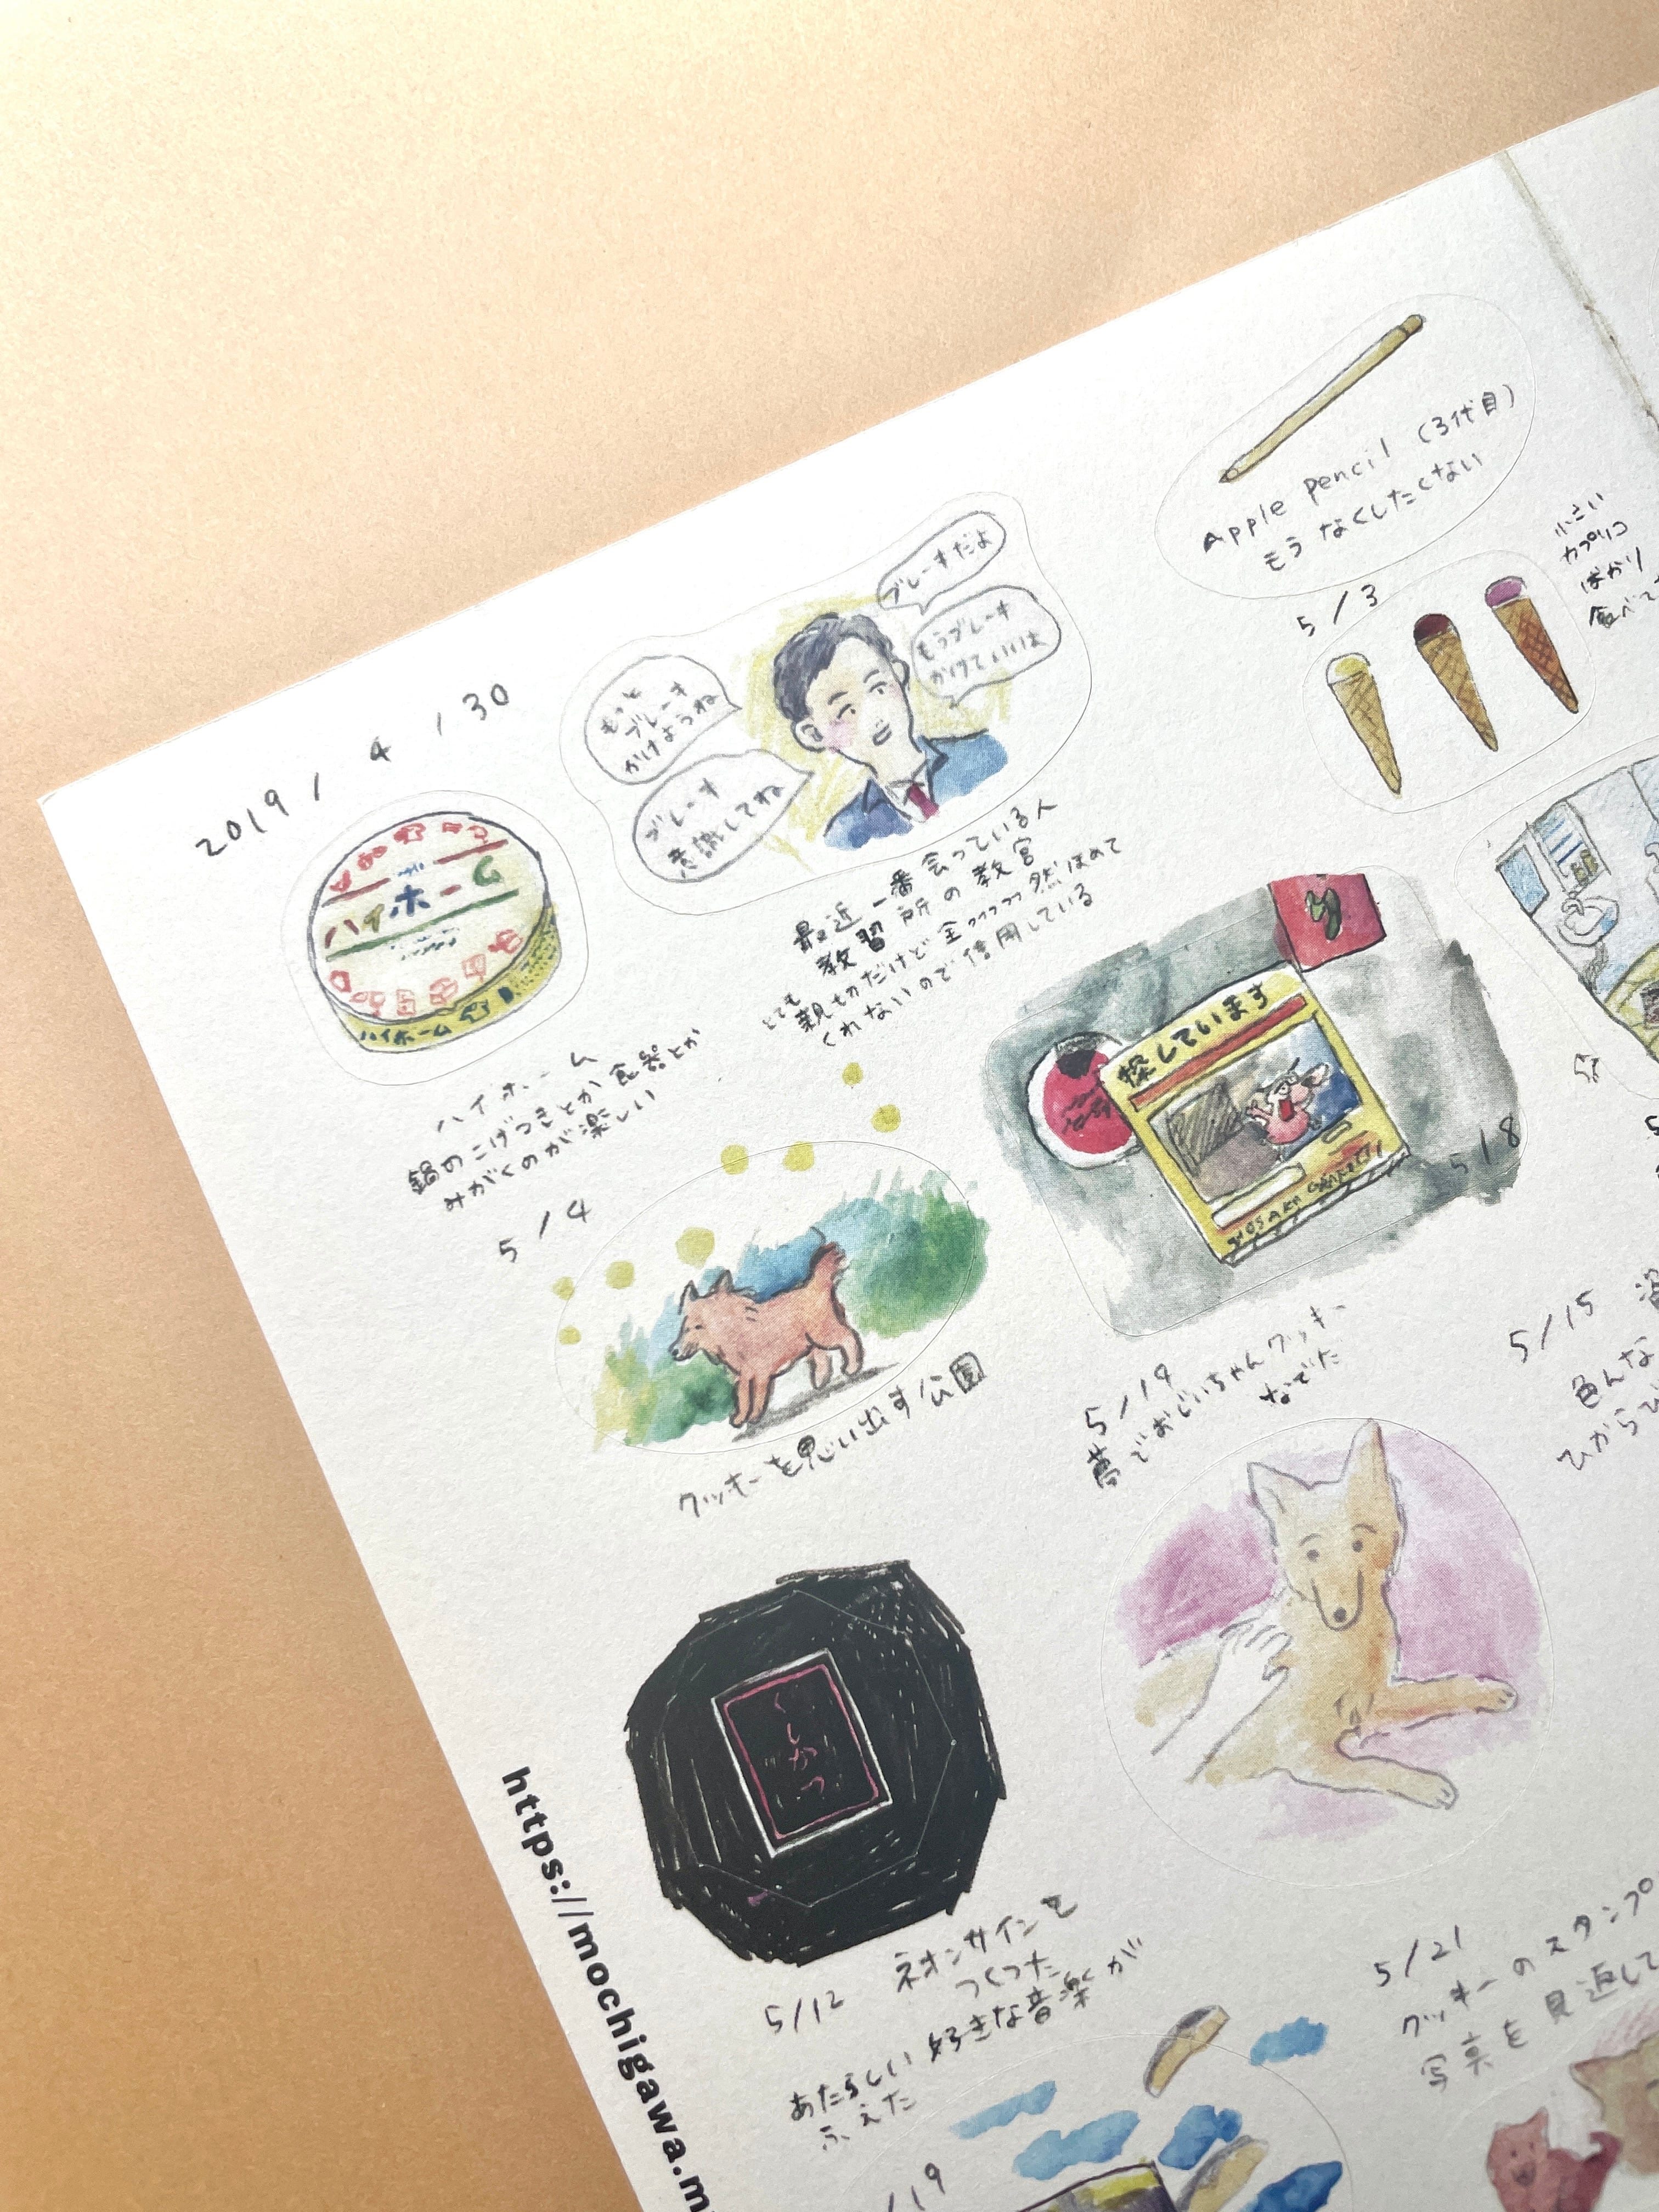 2019 / 4 / 30
ハイホーム
ハイホーム
ハイホーム
鍋のこげつきとか食器とか
みがくのが楽しい
もっと
ブレーキ
かけようね
ブレーキ
意識してね
ブレーキだよ
もうブレーキ
かけていいよ
最近一番会っている人
教習所の教官
とても
親切だけど全ッッッッ然ほめて
くれないので信用している
Apple pencil (3代目)
もうなくしたくない
5/3
小さい
カプリコ
ばかり
食べて
5/4
クッキーを思い出す公園
探しています
5/8
5/19
夢でおじいちゃんクッキー
なでた
5/15
色んな
ひからび
くしかつ
5/12 ネオンサインを
つくった
あたらしい好きな音楽が
ふえた
5/21
クッキーのスタンプ
写真を見返して
/19
https://mochigawa.m